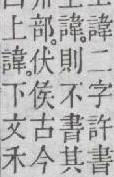 諱二字許書
上諱。則不書其
部。伏侯古今
上諱。下文禾